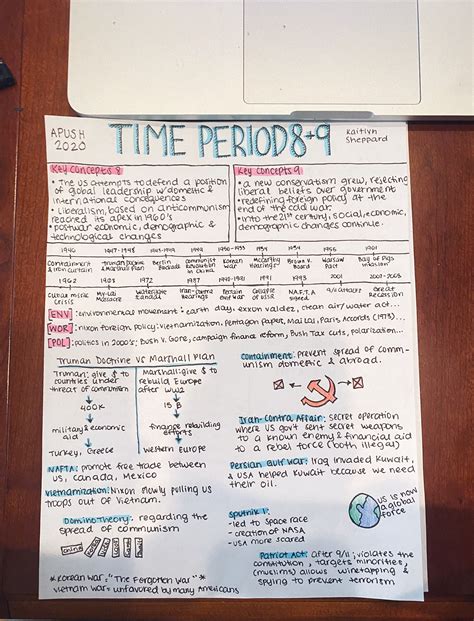 APUSH
2020
TIME PERIOD 8+9
Kaitlyn
Sheppard
Key Concepts 8
• The US attempts to defend a position
of global leadership w/domestic &
international consequences
• liberalism, based on anticommunism
reached its apex in 1960's
• postwar economic, demographic &
technological changes
Key Concepts 9
• a new conservatism grew, rejecting
liberal beliefs over government
• redefining foreign policy at the
end of the cold war.
• into the 21st century, social, economic,
demographic changes continue.
1946 1947-1948 1949 1950-1953 1954 1954 1956 1961
Containment & Iron curtain
Truman Doctrine & Marshall plan
Berlin Blockade
communist revolution in China
Korean war
McCarthy Hearings
Brown v. Board
Warsaw Pact
Bay of Pigs invasion
1962 1968 1972 1987 1991 1993 2001 2007-2008
Cuban Missile Crisis
My Lai Massacre
Watergate Scandal
Iran-Contra Hearings
Persian Gulf war
Collapse of USSR
NAFTA signed
9/11 attacks
Great Recession
[ENV]: environmental movement • earth day, exxon valdez, clean air/water act...
[WOR]: nixon foreign policy: vietnamization, pentagon paper, Mai Lai, Paris Accords (1973)...
[POL]: politics in 2000's: bush v. Gore, campaign finance reform, Bush Tax cuts, polarization...
Truman Doctrine vs Marshall Plan
Truman: give $ to
countries under
threat of communism
400K
military & economic
aid
Turkey, Greece
Marshall: give $ to
rebuild Europe
after WW2
15 B
finance rebuilding
efforts
Western Europe
Containment: prevent spread of comm-
unism domestic & abroad.
Iran-Contra Affair: secret operation
where US gov't sent secret weapons
to a known enemy & financial aid
to a rebel force (both illegal)
NAFTA: promote free trade between
US, Canada, Mexico
Vietnamization: Nixon slowly pulling US
troops out of Vietnam.
Persian Gulf War: Iraq invaded Kuwait,
& USA helped Kuwait because we need
their oil.
Domino Theory: regarding the
spread of communism
china
Sputnik 1:
- led to space race
- creation of NASA
- USA more scared
US is now
a global
force
Patriot Act: after 9/11; violates the
constitution, targets minorities
(muslims) allows wiretapping &
spying to prevent terrorism
*Korean war, "The Forgotten War"*
Vietnam war - unfavored by many Americans